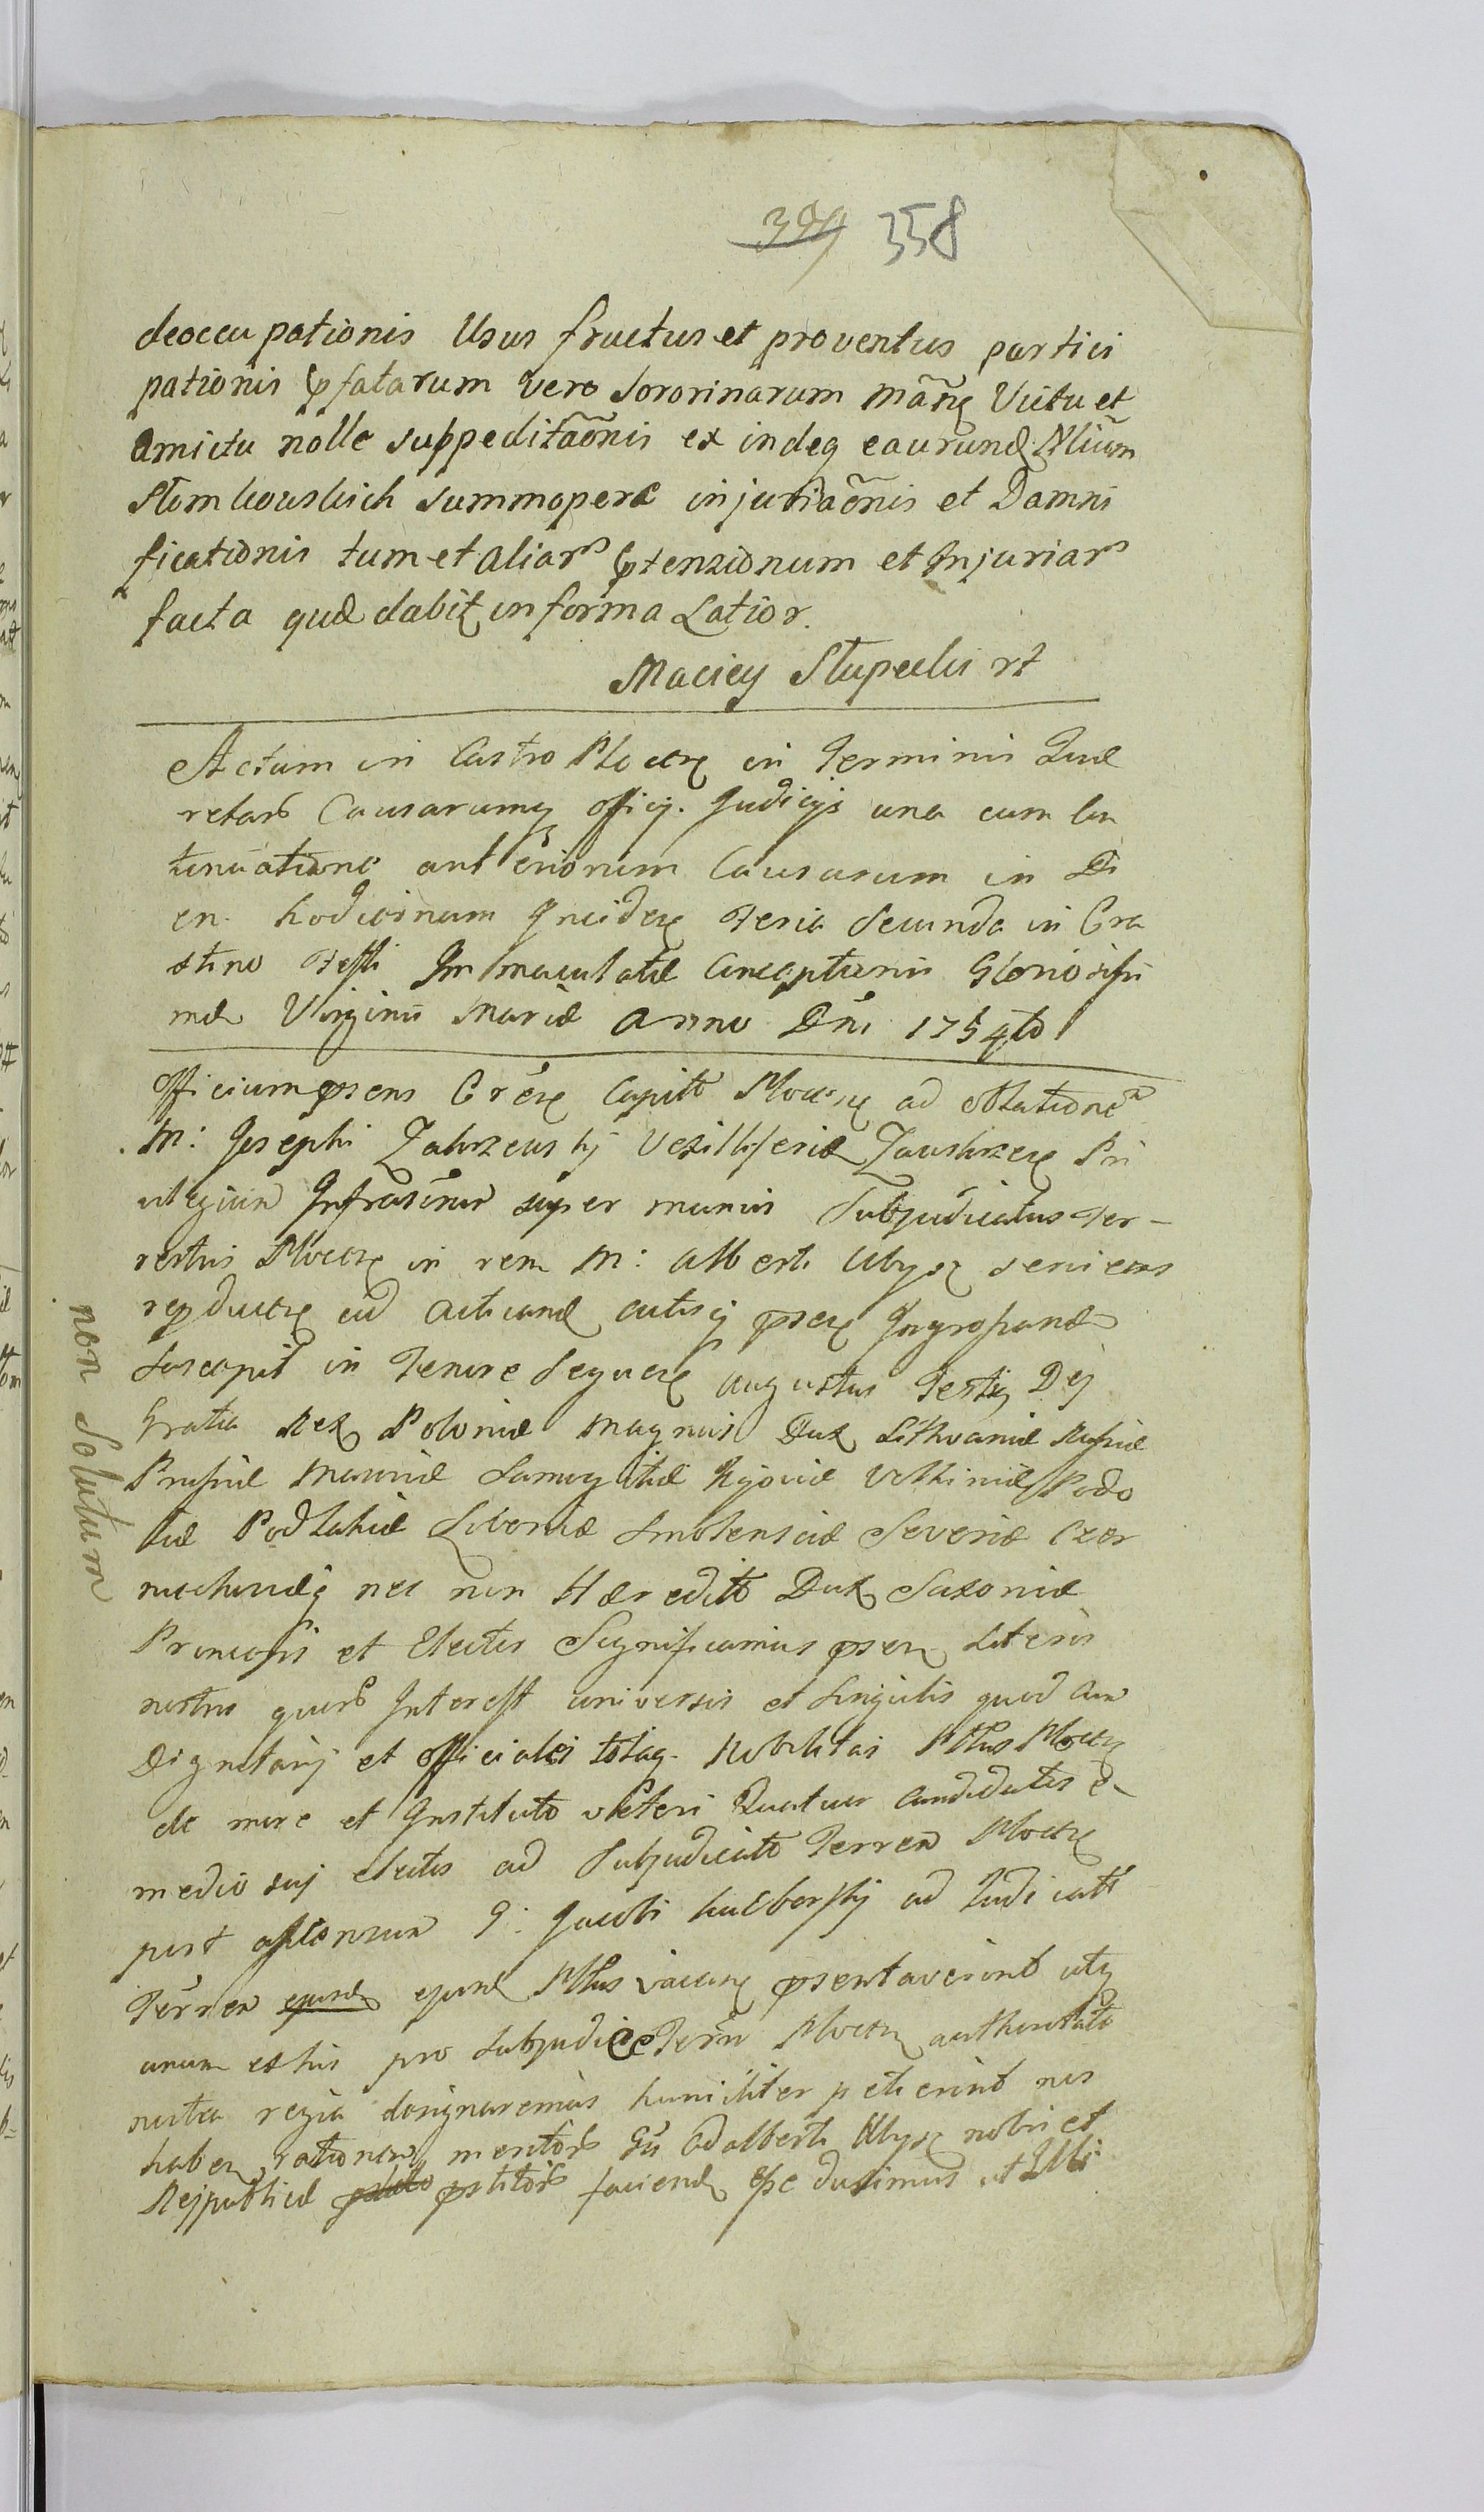 399 358
deoccupationis Usus fructus et proventus partici
pationis p̱fatarum vero Sororinarum mãnẹ Victu et
amictu nolle suppeditãõnis ex indeq eaurund Nlium
Slomkowskich summopere injuriãõnis et Damni
ficationis tum et aliar p̱tensionum et Injuriar
facta quæ dabit in forma Latior.
Maciey Slupecki rt
Actum in Castro Plocen in Terminis Que
relar Causarumq offici. Judicijs una cum Con
tinuatione anteriorum Causarum in Di
em hodiernum Inciden Feria Secunda in Cra
stino Festi Immaculatæ Conceptionis Gloriosissi
mæ Virginis Mariæ Anno Dni 1754to
Officium p̱sens Cren Capit Plocen ad oblatione
M: Josephi Zakrzewskj Vexilliferidæ Zawskrzen Pri
vilegium Infrascr super munus Subjudicatus Ter-
restris Plocen in rem M: Alberti Ubysz serviens
reproducen ad acticand actisq p̱sen Ingrossand
Suscepit in Tenore Sequen Augustus Tertiq Dej
Gratia Rex Poloniæ Magnus Dux Lithvaniæ Russiæ
Prussiæ Masoviæ Samogitiæ Kijoviæ Volhiniæ Podo
liæ Podlahiæ Livoniæ Smolensciæ Severiæ Czer
niechoviæq nec non Hæredit Dux Saxoniæ
Princeps et Elector Significamus p̱sen Literis
nostris quor Interest universis et singulis quod cum
Dignitarij et Officiales totaq Nobilitas Pltus Plocen
de more et Instituto veteri Quatuor Candidatis e
medio suj electis ad Subjudicat Terren Plocen
post ascensum G: Jacobi Kuczborskj ad Judicat
Terren ejusd ejusd Pltus vacan p̱sentaverint utq
unum ex his pro Subjudice Terrn Plocen authoritate
nostra regia designaremus humiliter petierint nos
haben rationem meritor Gsi Adalberti Ubysz nobis et
Reipublicæ p̱stitor faciend esse duximus ut Illi
non Solutum